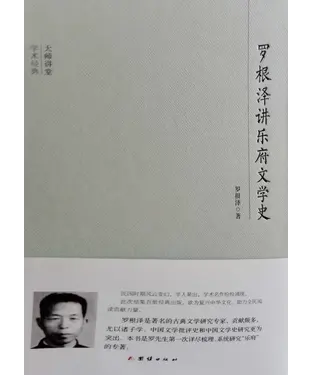 罗根泽讲乐府文学史
罗根泽 著
大师讲堂
学术经典
罗根泽是著名的古典文学研究专家,贡献颇多,
尤以诸子学、中国文学批评史和中国文学史研究更为
突出。本书是罗先生第一次详尽梳理、系统研究“乐府”
的专著。
团结出版社